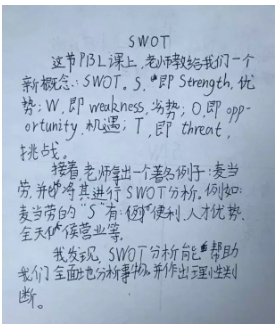 SWOT
这节PBL课上,老师教给我们一个
新概念:SWOT。S,即Strength,优
势;W,即weakness,劣势;O,即opp-
ortunity,机遇;T,即threat,
挑战。
接着,老师拿出一个著名例子:麦当
劳,并将其进行SWOT分析。例如:
麦当劳的"S"有:便利、人才优势、
全天候营业等。
我发现,SWOT分析能帮助
我们全面地分析事物,并作出理性判
断。